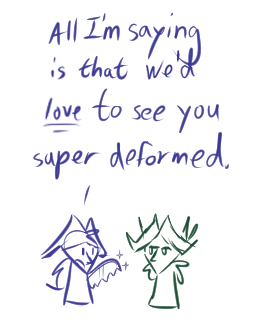 All I'm saying
is that we'd
love to see you
super deformed.